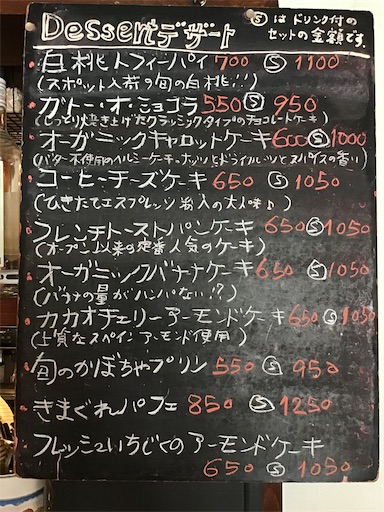 Dessertデザート
Ⓢはドリンク付の
セットの金額です。
白桃トフィーパイ 700 Ⓢ 1100
(スポット入荷の旬の白桃!!)
ガトー・オ・ショコラ 550 Ⓢ 950
(しっとり焼き上げたクラッシックタイプのチョコレートケーキ)
オーガニックキャロットケーキ 600 Ⓢ 1000
(バター不使用のヘルシーケーキ。ナッツとドライフルーツとスパイスの香り)
コーヒーチーズケーキ 650 Ⓢ 1050
(ひきたてエスプレッソ珈入の大人味♪)
フレンチトーストパンケーキ 650 Ⓢ 1050
(オープン以来の定番人気のケーキ)
オーガニックバナナケーキ 650 Ⓢ 1050
(バナナの量がハンパない!?)
カカオチェリーアーモンドケーキ 650 Ⓢ 1050
(上質なスペインアーモンド使用)
旬のかぼちゃプリン 550 Ⓢ 950
きまぐれパフェ 850 Ⓢ 1250
フレッシュいちじくのアーモンドケーキ
650 Ⓢ 1050